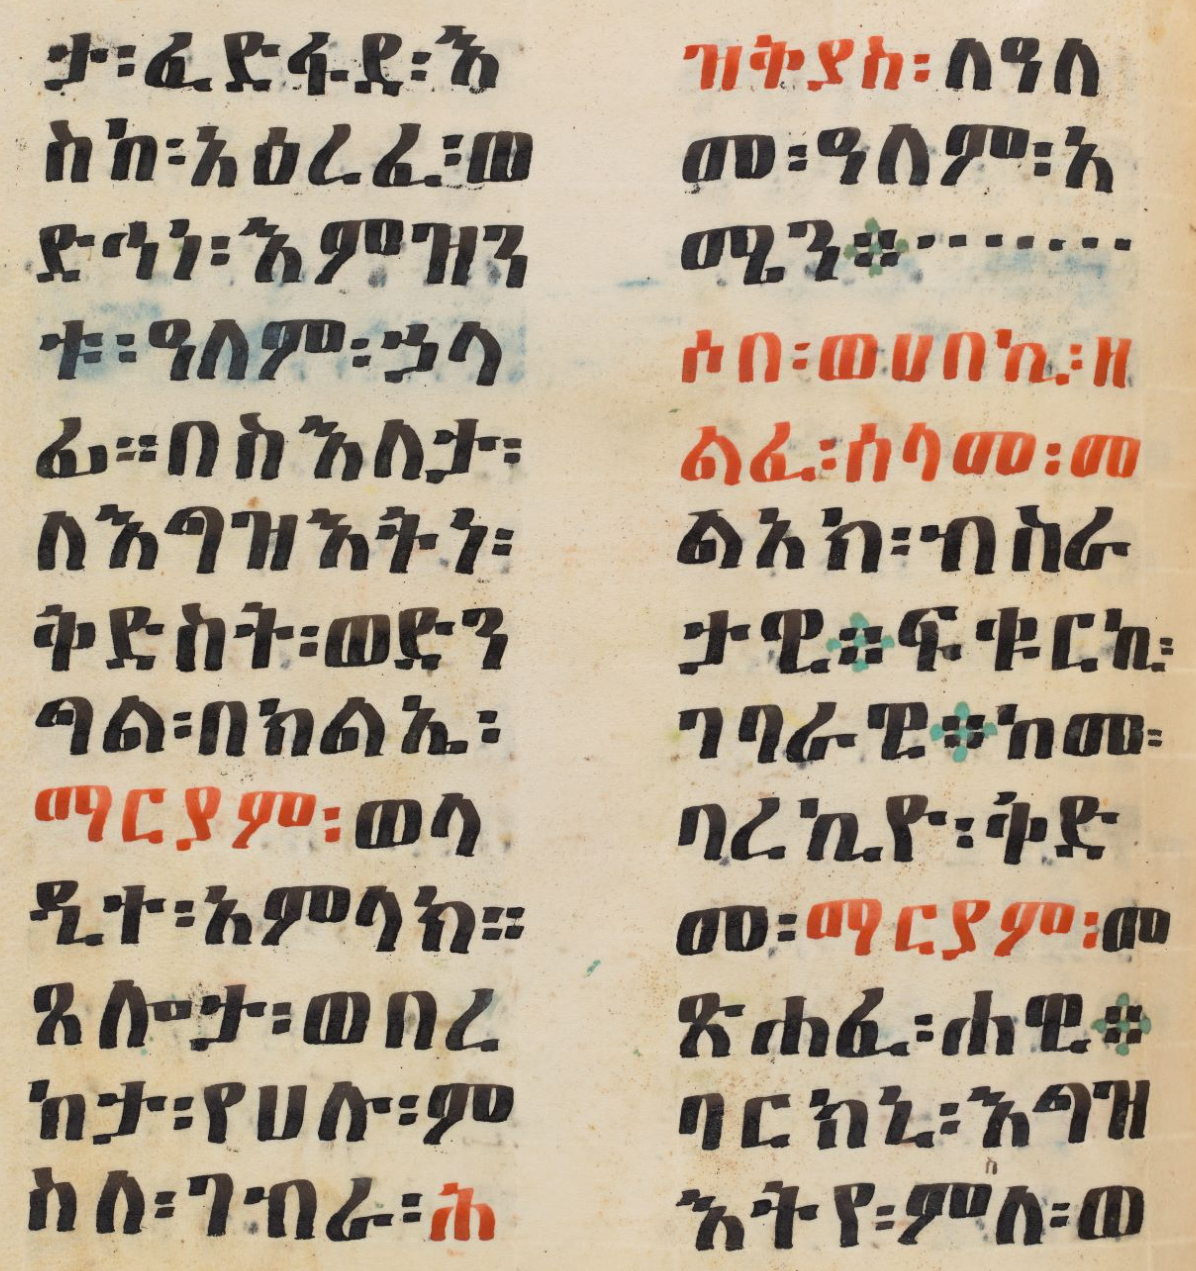 ታ፡ፈድፋደ፡እ
ስከ፡አዕረፈ፡ወ
ድኅነ፡እምዝን
ቱ፡ዓለም፡ኃላ
ፊ፡፡በስእለታ፡
ለእግዝእትነ፡
ቅድስት፡ወድን
ግል፡በክልኤ፡
ማርያም፡ወላ
ዲተ፡አምላክ፡፡
ጸሎታ፡ወበረ
ከታ፡የሀሉ፡ም
ስለ፡ገብራ፡ሕ
ዝቅያስ፡ለዓለ
መ፡ዓለም፡አ
ሜን፨
ሶበ፡ወሀበኪ፡ዘ
ልፈ፡ሰላመ፡መ
ልአክ፡ብስራ
ታዊ፨ፍቁርኪ፡
ገባራዊ፨ከመ፡
ባረኪዮ፡ቅድ
መ፡ማርያም፡መ
ጽሐፈ፡ሐዊ፨
ባርክኒ፡እግዝ
እትየ፡ምለ፡ወ